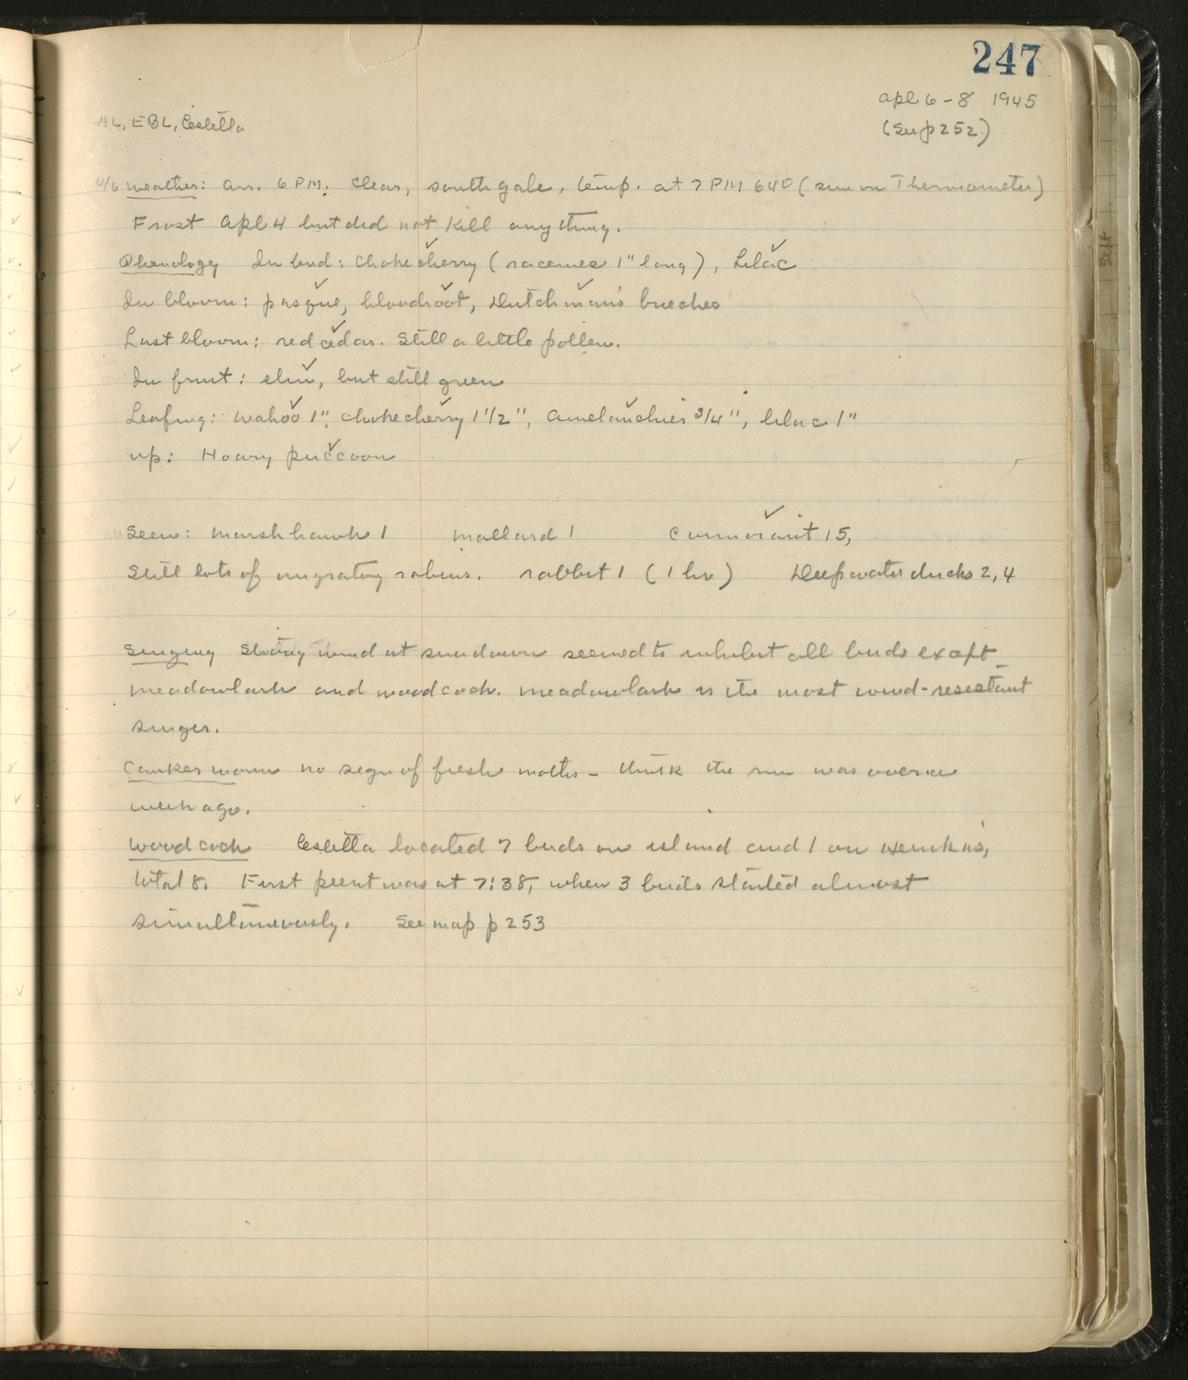 247
Apl 6-8 1945
(See p 252)
AL, EBL, Estella
4/6 Weather: arr. 6 PM. Clear, south gale, temp. at 7 PM 64° (sun on thermometer)
Frost Apl 4 but did not kill anything.
Phenology In bud: Chokecherry (racemes 1" long), Lilac
In bloom: pasque, bloodroot, Dutchman's breeches
Last bloom: red cedar. Still a little pollen.
In fruit: elm, but still green
Leafing: Wahoo 1", chokecherry 1 1/2", Amelanchier 3/4", lilac 1"
Up: Hoary puccoon
Seen: Marsh hawk 1 mallard 1 Cormorant 15,
Still lots of migratory robins. rabbit 1 (1 hr) Deepwater ducks 2, 4
Singing Strong wind at sundown seemed to inhibit all birds except
meadowlark and woodcock. Meadowlark is the most wind-resistant
singer.
Canker worm no sign of fresh moths - think the run was over a
week ago.
Woodcock Estella located 7 birds on island and 1 on
total 8. First peent was at 7:38, when 3 birds started almost
simultaneously. See map p 253